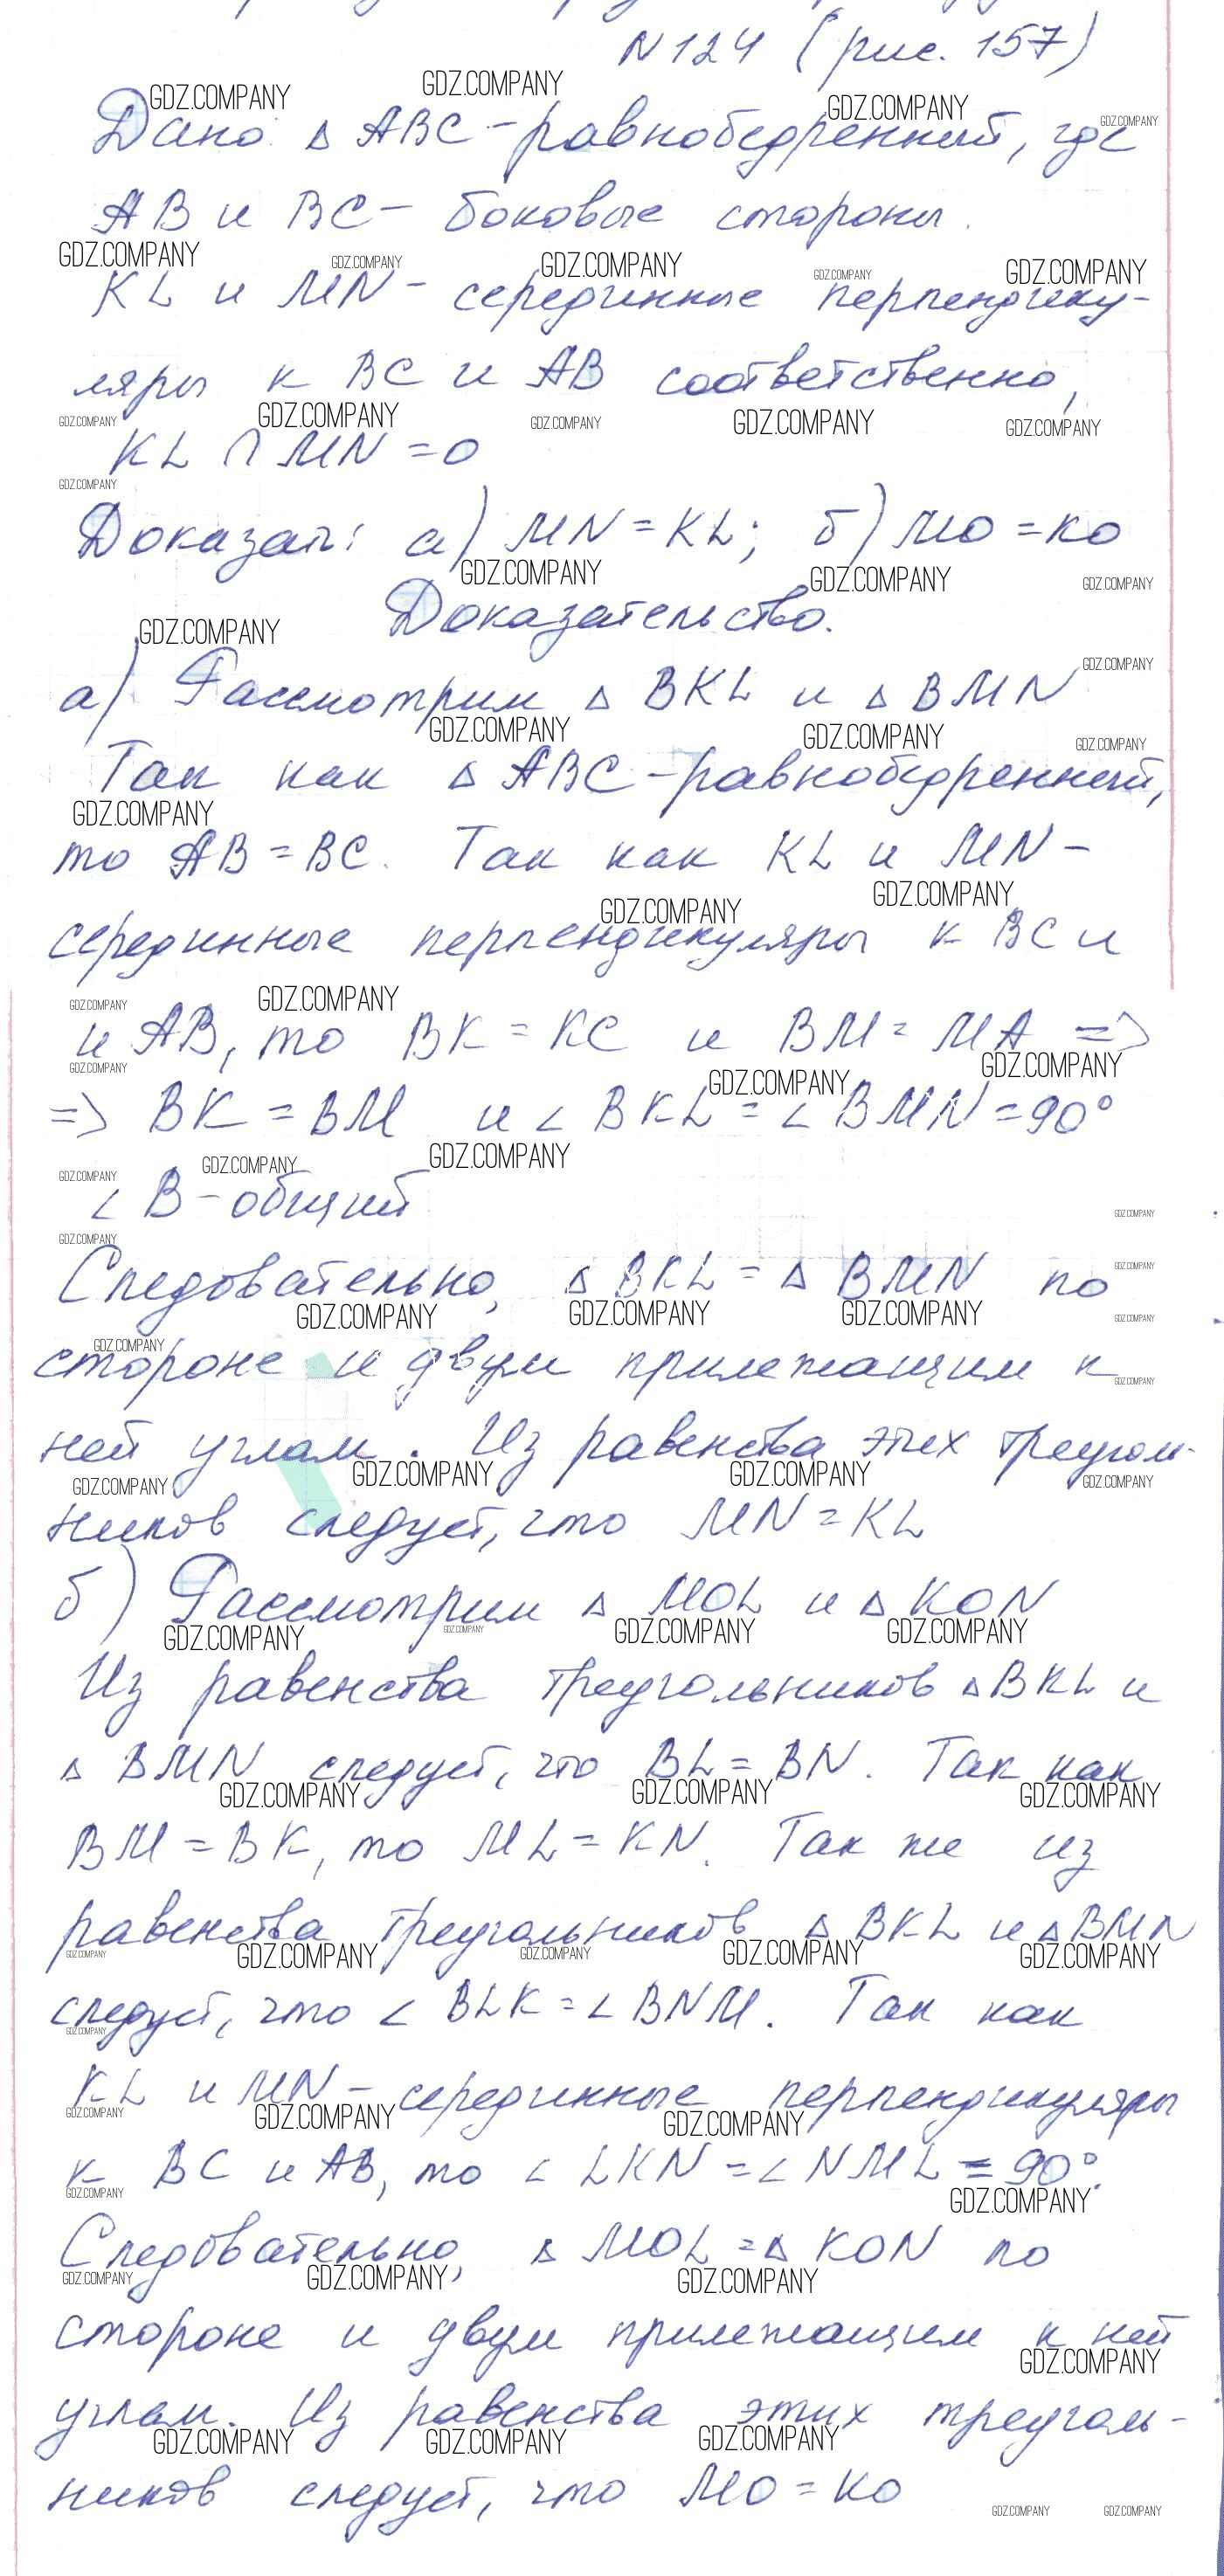 N 124 (рис. 157)
Дано: △ ABC - равнобедренный, где
AB и BC - боковые стороны.
KL и MN - серединные перпендику-
ляры к BC и AB соответственно,
KL ∩ MN = O
Доказать: а) MN = KL; б) MO = KO
Доказательство.
а) Рассмотрим △ BKL и △ BMN
Так как △ ABC - равнобедренный,
то AB = BC. Так как KL и MN -
серединные перпендикуляры к BC и
и AB, то BK = KC и BM = MA =>
=> BK = BM и ∠ BKL = ∠ BMN = 90°
∠ B - общий
Следовательно, △ BKL = △ BMN по
стороне и двум прилежащим к
ней углам. Из равенства этих треуголь-
ников следует, что MN = KL
б) Рассмотрим △ MOL и △ KON
Из равенства треугольников △ BKL и
△ BMN следует, что BL = BN. Так как
BM = BK, то ML = KN. Так же из
равенства треугольников △ BKL и △ BMN
следует, что ∠ BLK = ∠ BNM. Так как
KL и MN - серединные перпендикуляры
к BC и AB, то ∠ LKN = ∠ NML = 90°.
Следовательно, △ MOL = △ KON по
стороне и двум прилежащим к ней
углам. Из равенства этих треуголь-
ников следует, что MO = KO
GDZ.COMPANY